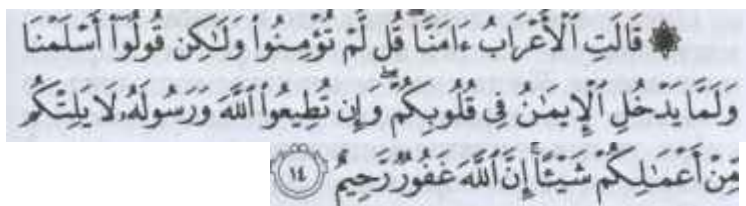 ۞ قَالَتِ ٱلْأَعْرَابُ ءَامَنَّا ۖ قُل لَّمْ تُؤْمِنُوا۟ وَلَٰكِن قُولُوٓا۟ أَسْلَمْنَا
وَلَمَّا يَدْخُلِ ٱلْإِيمَٰنُ فِى قُلُوبِكُمْ ۖ وَإِن تُطِيعُوا۟ ٱللَّهَ وَرَسُولَهُۥ لَا يَلِتْكُم
مِّنْ أَعْمَٰلِكُمْ شَيْـًٔا ۚ إِنَّ ٱللَّهَ غَفُورٌ رَّحِيمٌ ١٤